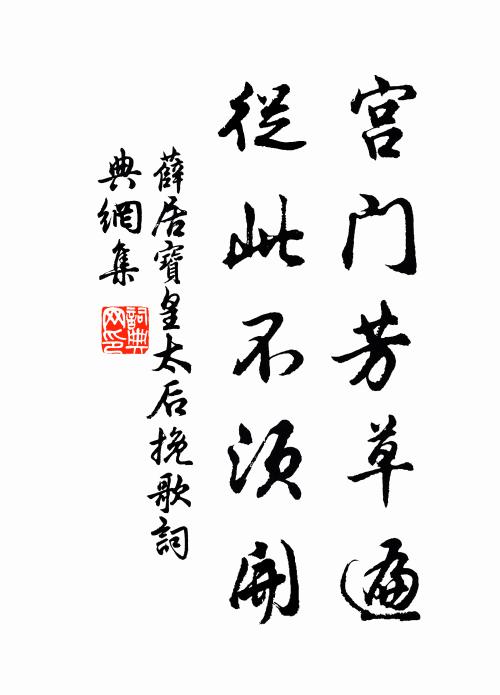 宫门芳草遍
從此不须開
薛居寶皇太后挽歌詞
典網集
詞典网印